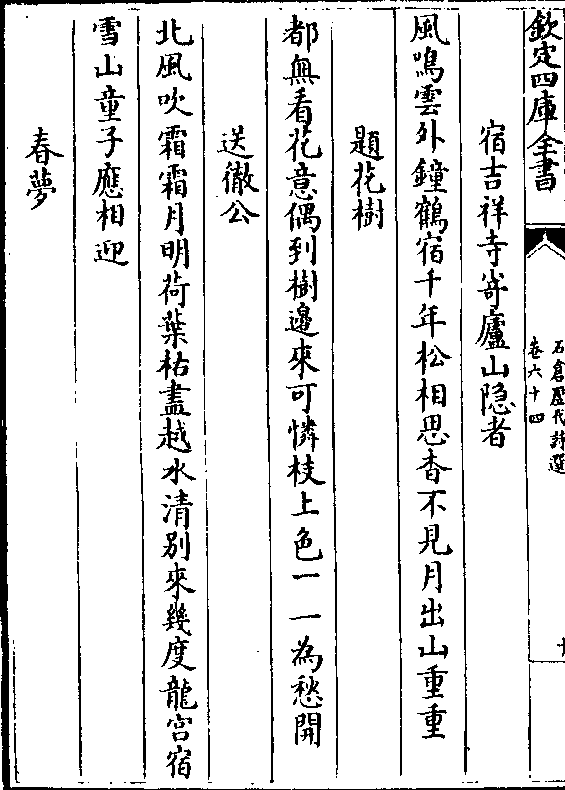 欽定四庫全書
石倉歷代詩選
卷六十四
十
宿吉祥寺寄廬山隐者
風鳴雲外鐘鶴宿千年松相思杳不見月出山重重
題花樹
都無看花意偶到樹邊來可憐枝上色一一為愁開
送徹公
北風吹霜霜月明荷葉枯盡越水清别來幾度龍宫宿
雪山童子應相迎
春夢